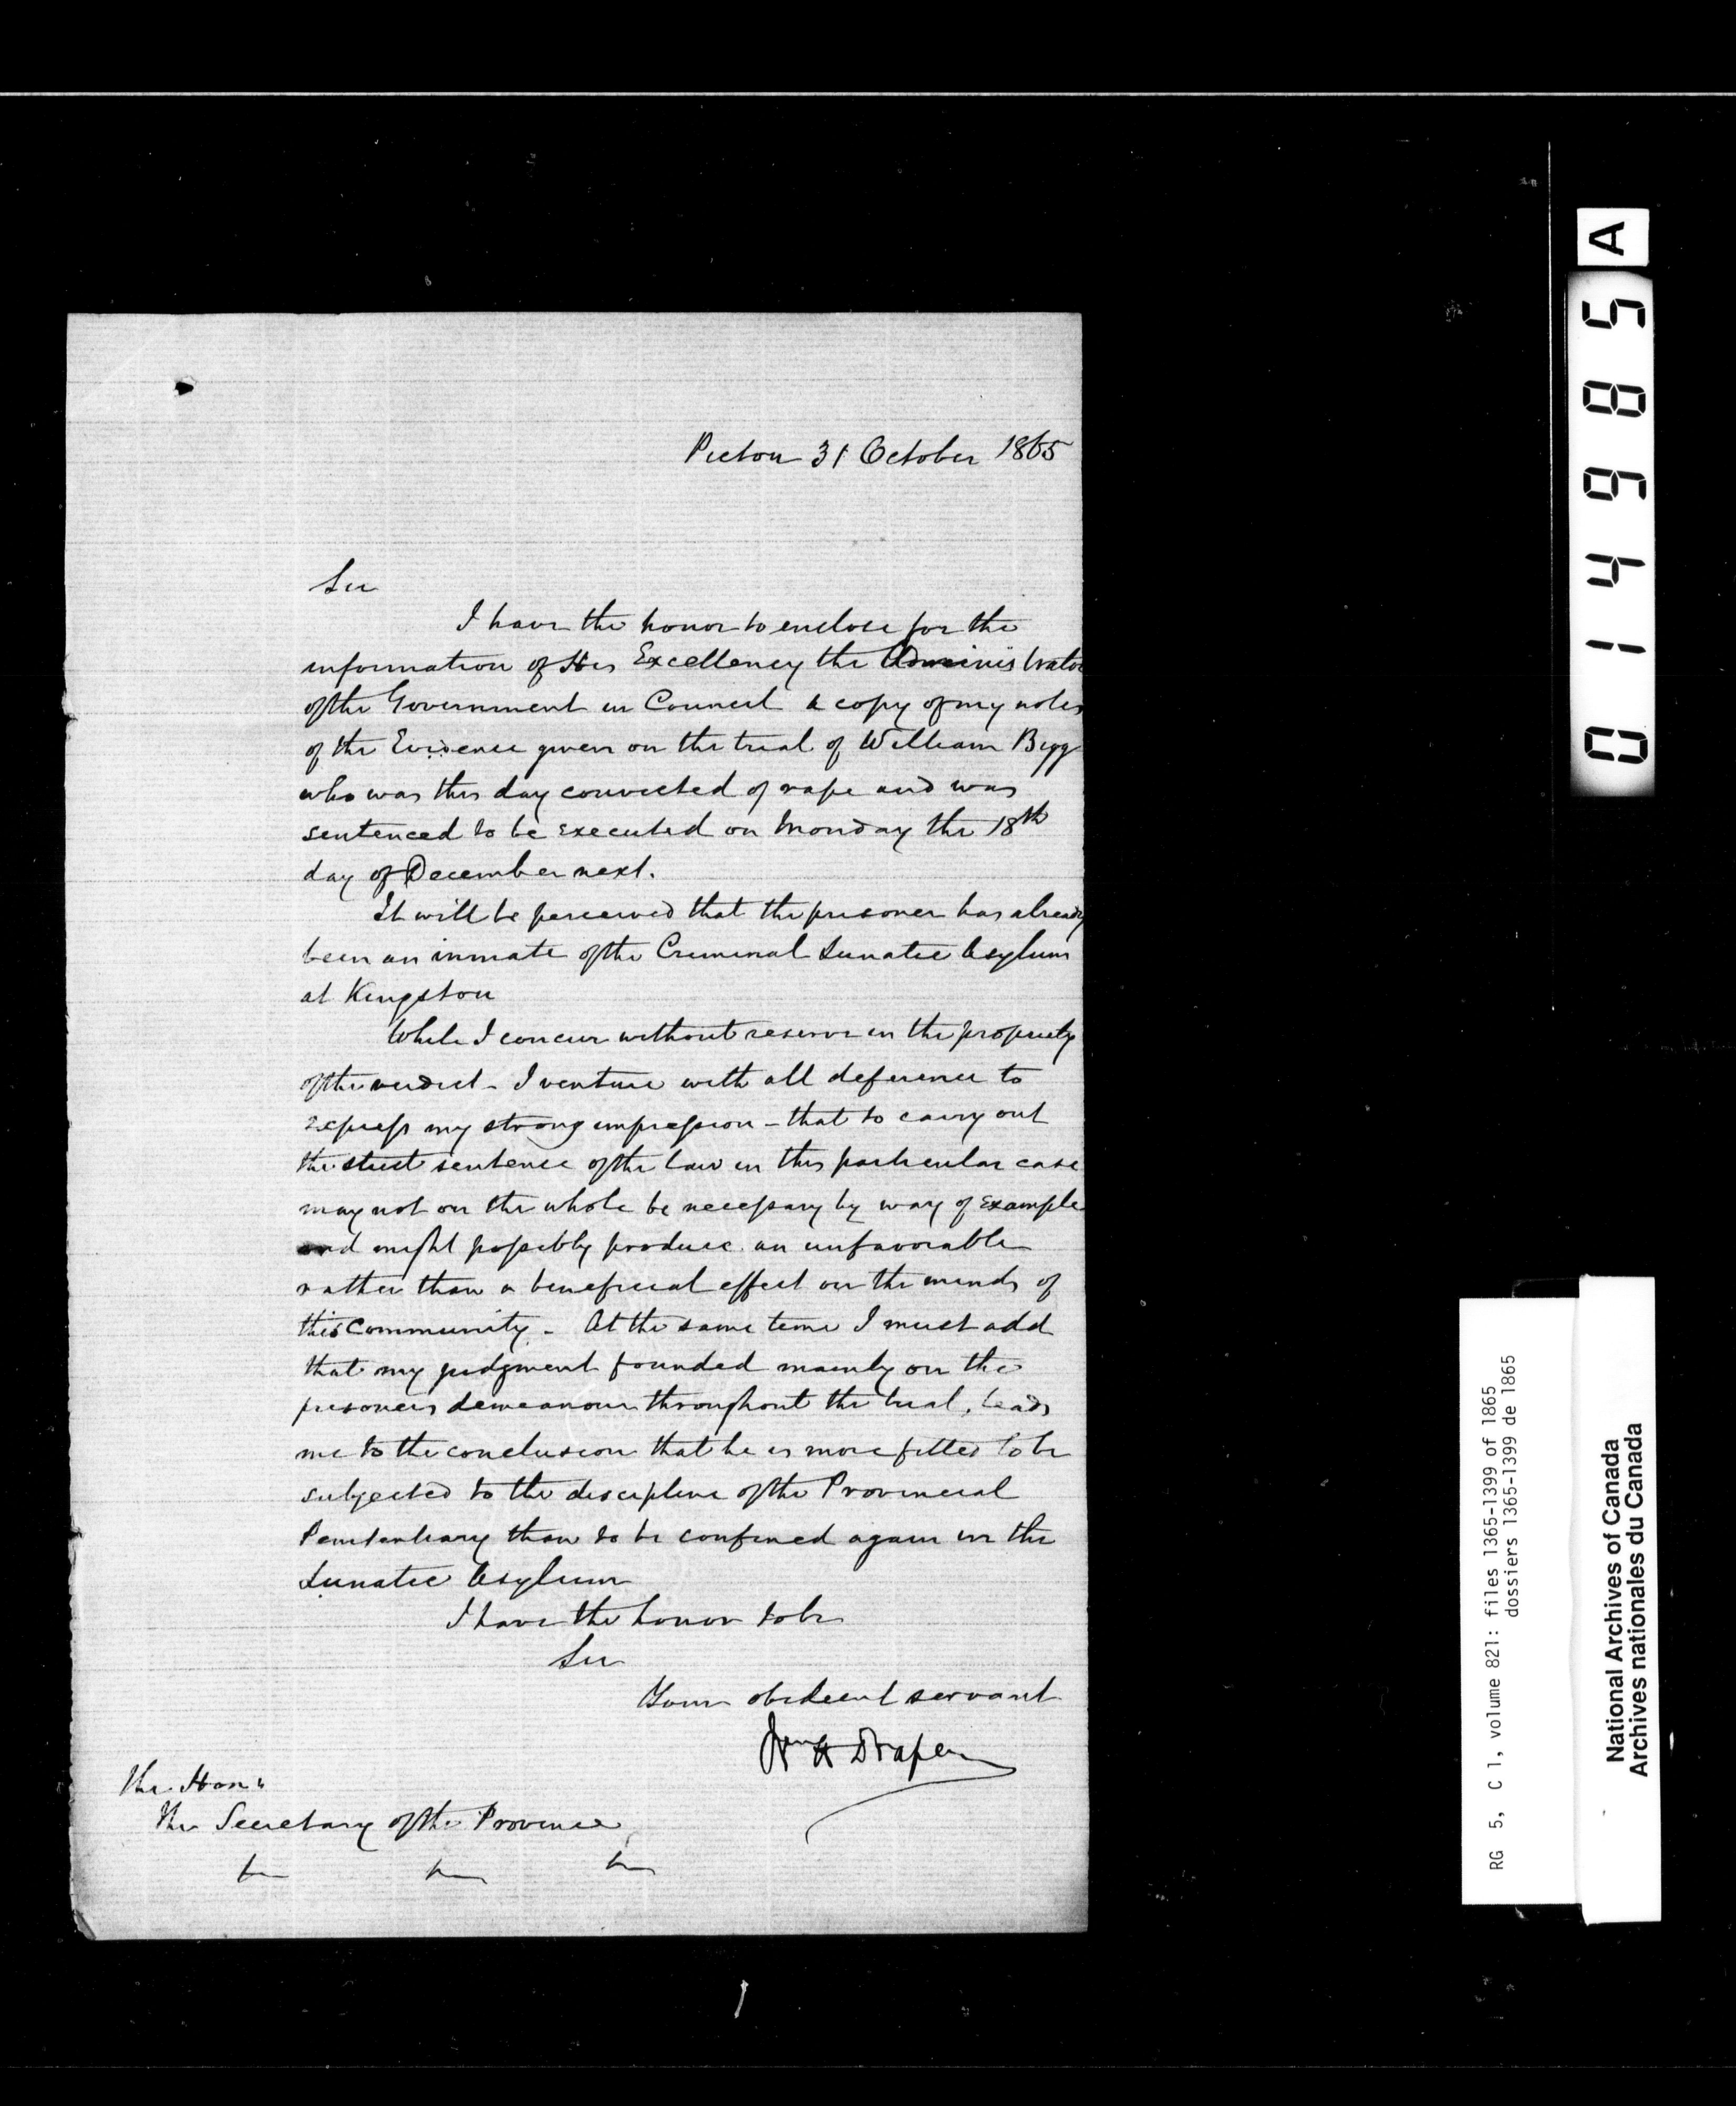 Picton 31 October 1865
Sir
I have the honor to enclose for the
information of His Excellency the Administrator
of the Government in Council a copy of my notes
of the Evidence given on the trial of William Bigg
who was this day convicted of rape and was
sentenced to be executed on Monday the 18th
day of December next.
It will be perceived that the prisoner has already
been an inmate of the Criminal Lunatic Asylum
at Kingston
While I concur without reserve in the propriety
of the verdict - I venture with all deference to
express my strong impression - that to carry out
the strict sentence of the law in this particular case
may not on the whole be necessary by way of example
and might possibly produce an unfavorable
rather than a beneficial effect on the minds of
this Community - At the same time I must add
that my judgment founded mainly on the
prisoners demeanour throughout the trial, leads
me to the conclusion that he is more fitted to be
subjected to the discipline of the Provincial
Penitentiary than to be confined again in the
Lunatic Asylum
I have the honor to be
Sir
Your obedient servant
Wm H Draper
The Honble
The Secretary of the Province
01485 A
RG 5, C 1, volume 821: files 1365-1399 of 1865
dossiers 1365-1399 de 1865
National Archives of Canada
Archives nationales du Canada